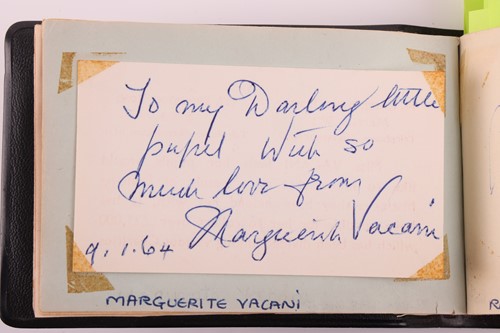 To my Darling little
pupil With so
much love from
Marguerite Vacani
9.1.64
MARGUERITE VACANI
R